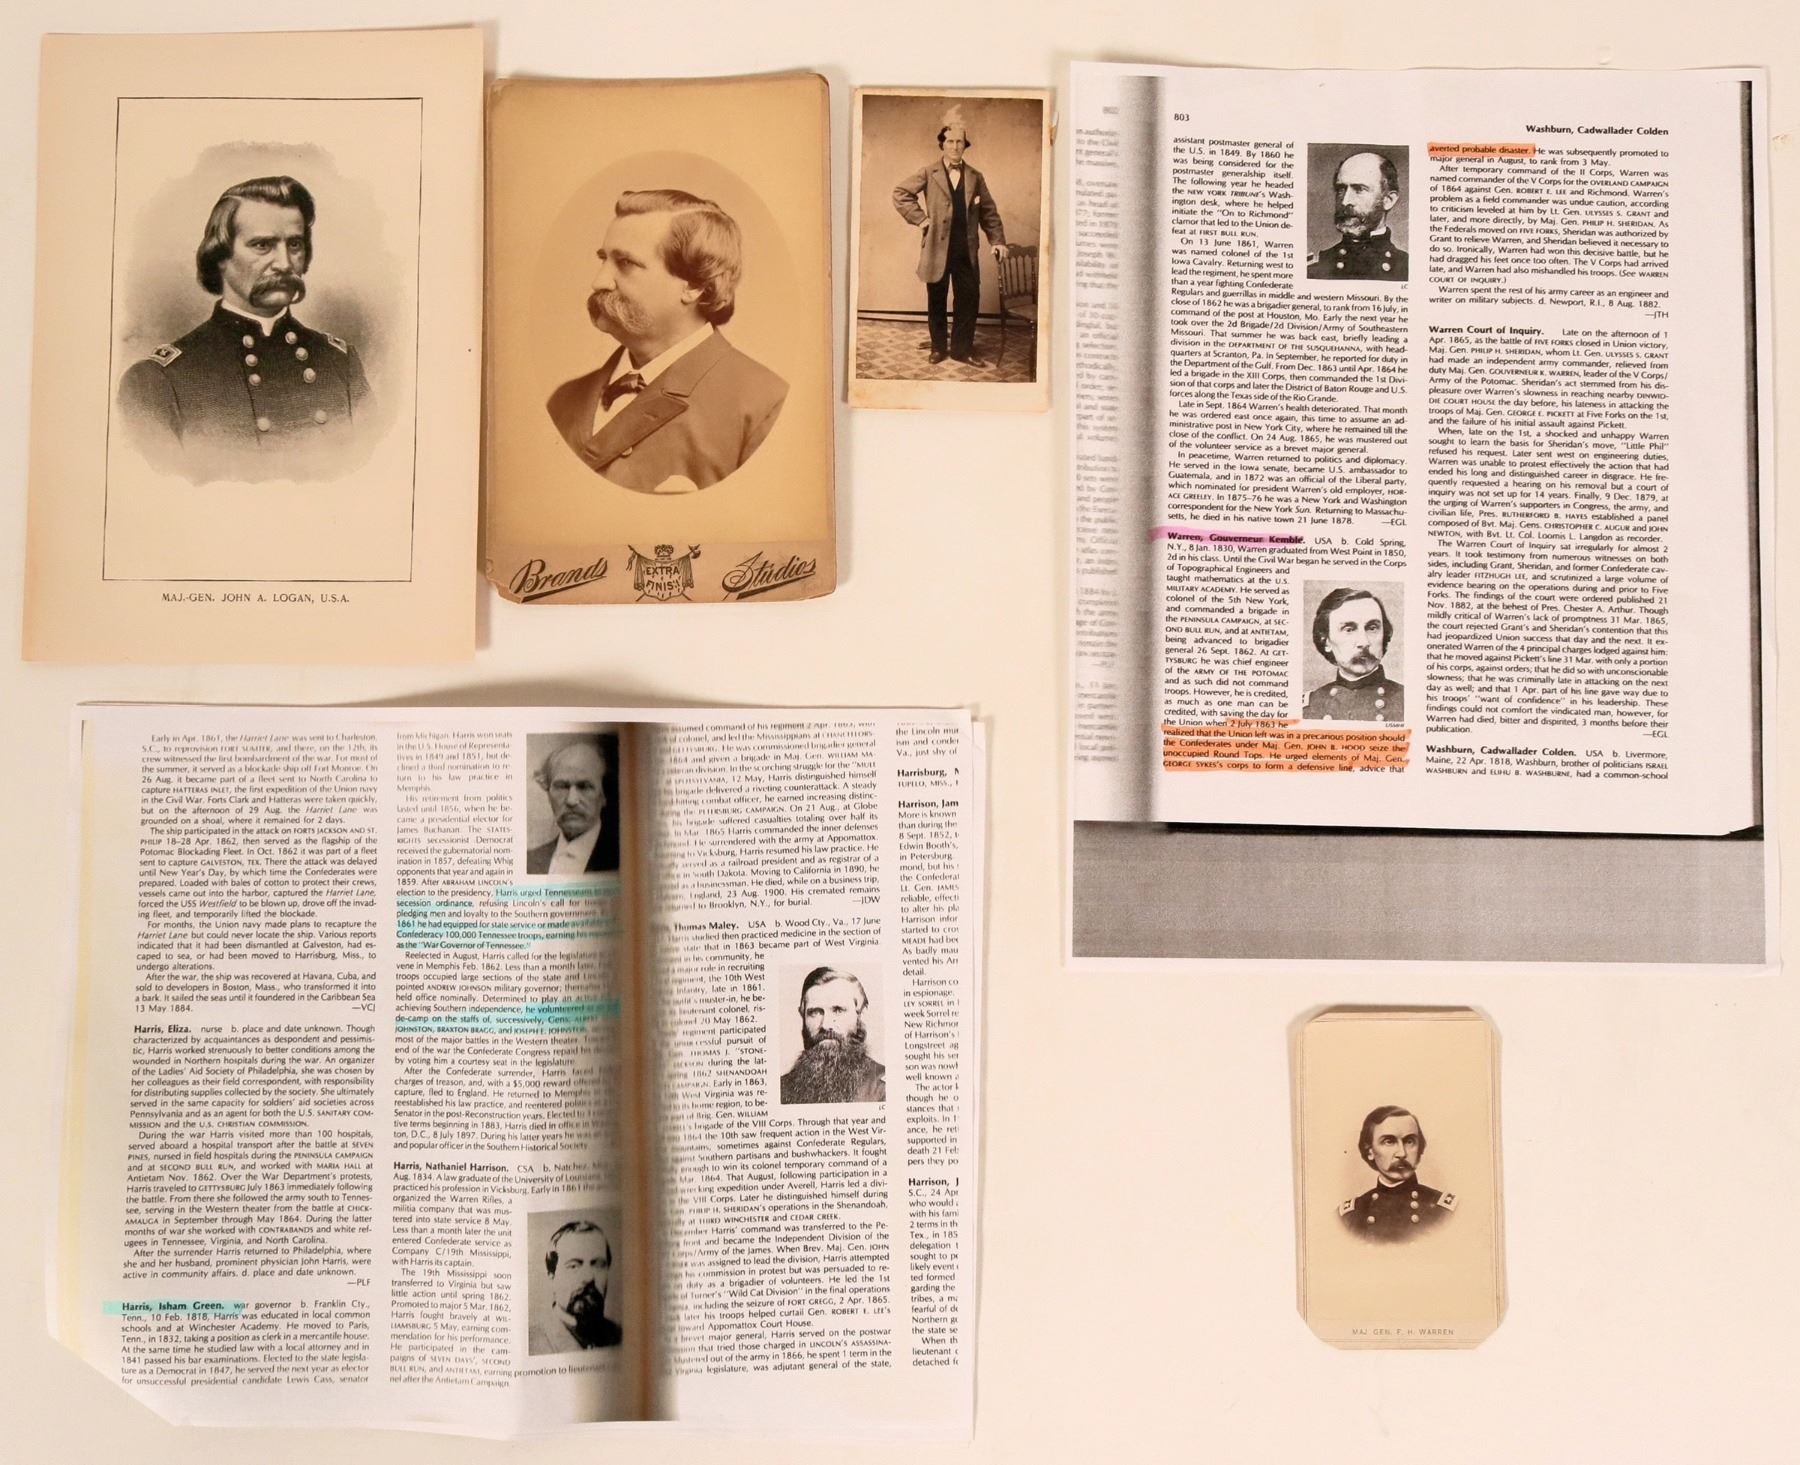 MAJ.-GEN. JOHN A. LOGAN, U.S.A.
Brands
EXTRA
FINISH
Studios
803
Washburn, Cadwallader Colden
assistant postmaster general of
the U.S. in 1849. By 1860 he
was being considered for the
postmaster generalship itself.
The following year he headed
the NEW YORK TRIBUNE's Wash-
ington desk, where he helped
initiate the "On to Richmond"
clamor that led to the Union de-
feat at FIRST BULL RUN.
On 13 June 1861, Warren
was named colonel of the 1st
Iowa Cavalry. Returning west to
lead the regiment, he spent more
than a year fighting Confederate
LC
Regulars and guerrillas in middle and western Missouri. By the
close of 1862 he was a brigadier general, to rank from 16 July, in
command of the post at Houston, Mo. Early the next year he
took over the 2d Brigade/2d Division/Army of Southeastern
Missouri. That summer he was back east, briefly leading a
division in the DEPARTMENT OF THE SUSQUEHANNA, with head-
quarters at Scranton, Pa. In September, he reported for duty in
the Department of the Gulf. From Dec. 1863 until Apr. 1864 he
led a brigade in the XIII Corps, then commanded the 1st Divi-
sion of that corps and later the District of Baton Rouge and U.S.
forces along the Texas side of the Rio Grande.
Late in Sept. 1864 Warren's health deteriorated. That month
he was ordered east once again, this time to assume an ad-
ministrative post in New York City, where he remained till the
close of the conflict. On 24 Aug. 1865, he was mustered out
of the volunteer service as a brevet major general.
In peacetime, Warren returned to politics and diplomacy.
He served in the Iowa senate, became U.S. ambassador to
Guatemala, and in 1872 was an official of the Liberal party,
which nominated for president Warren's old employer, HOR-
ACE GREELEY. In 1875–76 he was a New York and Washington
correspondent for the New York Sun. Returning to Massachu-
setts, he died in his native town 21 June 1878. —EGL
Warren, Gouverneur Kemble. USA b. Cold Spring,
N.Y., 8 Jan. 1830, Warren graduated from West Point in 1850,
2d in his class. Until the Civil War began he served in the Corps
of Topographical Engineers and
taught mathematics at the U.S.
MILITARY ACADEMY. He served as
colonel of the 5th New York,
and commanded a brigade in
the PENINSULA CAMPAIGN, at SEC-
OND BULL RUN, and at ANTIETAM,
being advanced to brigadier
general 26 Sept. 1862. At GET-
TYSBURG he was chief engineer
of the ARMY OF THE POTOMAC
and as such did not command
troops. However, he is credited,
as much as one man can be
credited, with saving the day for
USMHI
the Union when 2 July 1863 he
realized that the Union left was in a precarious position should
the Confederates under Maj. Gen. JOHN B. HOOD seize the
unoccupied Round Tops. He urged elements of Maj. Gen.
GEORGE SYKES's corps to form a defensive line, advice that
averted probable disaster. He was subsequently promoted to
major general in August, to rank from 3 May.
After temporary command of the II Corps, Warren was
named commander of the V Corps for the OVERLAND CAMPAIGN
of 1864 against Gen. ROBERT E. LEE and Richmond. Warren's
problem as a field commander was undue caution, according
to criticism leveled at him by Lt. Gen. ULYSSES S. GRANT and
later, and more directly, by Maj. Gen. PHILIP H. SHERIDAN. As
the Federals moved on FIVE FORKS, Sheridan was authorized by
Grant to relieve Warren, and Sheridan believed it necessary to
do so. Ironically, Warren had won this decisive battle, but he
had dragged his feet once too often. The V Corps had arrived
late, and Warren had also mishandled his troops. (See WARREN
COURT OF INQUIRY.)
Warren spent the rest of his army career as an engineer and
writer on military subjects. d. Newport, R.I., 8 Aug. 1882.
—JTH
Warren Court of Inquiry. Late on the afternoon of 1
Apr. 1865, as the battle of FIVE FORKS closed in Union victory,
Maj. Gen. PHILIP H. SHERIDAN, whom Lt. Gen. ULYSSES S. GRANT
had made an independent army commander, relieved from
duty Maj. Gen. GOUVERNEUR K. WARREN, leader of the V Corps/
Army of the Potomac. Sheridan's act stemmed from his dis-
pleasure over Warren's slowness in reaching nearby DINWID-
DIE COURT HOUSE the day before, his lateness in attacking the
troops of Maj. Gen. GEORGE E. PICKETT at Five Forks on the 1st,
and the failure of his initial assault against Pickett.
When, late on the 1st, a shocked and unhappy Warren
sought to learn the basis for Sheridan's move, "Little Phil"
refused his request. Later sent west on engineering duties,
Warren was unable to protest effectively the action that had
ended his long and distinguished career in disgrace. He fre-
quently requested a hearing on his removal but a court of
inquiry was not set up for 14 years. Finally, 9 Dec. 1879, at
the urging of Warren's supporters in Congress, the army, and
civilian life, Pres. RUTHERFORD B. HAYES established a panel
composed of Bvt. Maj. Gens. CHRISTOPHER C. AUGUR and JOHN
NEWTON, with Bvt. Lt. Col. Loomis L. Langdon as recorder.
The Warren Court of Inquiry sat irregularly for almost 2
years. It took testimony from numerous witnesses on both
sides, including Grant, Sheridan, and former Confederate cav-
alry leader FITZHUGH LEE, and scrutinized a large volume of
evidence bearing on the operations during and prior to Five
Forks. The findings of the court were ordered published 21
Nov. 1882, at the behest of Pres. Chester A. Arthur. Though
mildly critical of Warren's lack of promptness 31 Mar. 1865,
the court rejected Grant's and Sheridan's contention that this
had jeopardized Union success that day and the next. It ex-
onerated Warren of the 4 principal charges lodged against him:
that he moved against Pickett's line 31 Mar. with only a portion
of his corps, against orders; that he did so with unconscionable
slowness; that he was criminally late in attacking on the next
day as well; and that 1 Apr. part of his line gave way due to
his troops' "want of confidence" in his leadership. These
findings could not comfort the vindicated man, however, for
Warren had died, bitter and dispirited, 3 months before their
publication. —EGL
Washburn, Cadwallader Colden. USA b. Livermore,
Maine, 22 Apr. 1818, Washburn, brother of politicians ISRAEL
WASHBURN and ELIHU B. WASHBURNE, had a common-school
Early in Apr. 1861, the Harriet Lane was sent to Charleston,
S.C., to reprovision FORT SUMTER, and there, on the 12th, its
crew witnessed the first bombardment of the war. For most of
the summer, it served as a blockade ship off Fort Monroe. On
26 Aug. it became part of a fleet sent to North Carolina to
capture HATTERAS INLET, the first expedition of the Union navy
in the Civil War. Forts Clark and Hatteras were taken quickly,
but on the afternoon of 29 Aug. the Harriet Lane was
grounded on a shoal, where it remained for 2 days.
The ship participated in the attack on FORTS JACKSON AND ST.
PHILIP 18–28 Apr. 1862, then served as the flagship of the
Potomac Blockading Fleet. In Oct. 1862 it was part of a fleet
sent to capture GALVESTON, TEX. There the attack was delayed
until New Year's Day, by which time the Confederates were
prepared. Loaded with bales of cotton to protect their crews,
vessels came out into the harbor, captured the Harriet Lane,
forced the USS Westfield to be blown up, drove off the invad-
ing fleet, and temporarily lifted the blockade.
For months, the Union navy made plans to recapture the
Harriet Lane but could never locate the ship. Various reports
indicated that it had been dismantled at Galveston, had es-
caped to sea, or had been moved to Harrisburg, Miss., to
undergo alterations.
After the war, the ship was recovered at Havana, Cuba, and
sold to developers in Boston, Mass., who transformed it into
a bark. It sailed the seas until it foundered in the Caribbean Sea
13 May 1884. —VCJ
Harris, Eliza. nurse b. place and date unknown. Though
characterized by acquaintances as despondent and pessimis-
tic, Harris worked strenuously to better conditions among the
wounded in Northern hospitals during the war. An organizer
of the Ladies' Aid Society of Philadelphia, she was chosen by
her colleagues as their field correspondent, with responsibility
for distributing supplies collected by the society. She ultimately
served in the same capacity for soldiers' aid societies across
Pennsylvania and as an agent for both the U.S. SANITARY COM-
MISSION and the U.S. CHRISTIAN COMMISSION.
During the war Harris visited more than 100 hospitals,
served aboard a hospital transport after the battle at SEVEN
PINES, nursed in field hospitals during the PENINSULA CAMPAIGN
and at SECOND BULL RUN, and worked with MARIA HALL at
Antietam Nov. 1862. Over the War Department's protests,
Harris traveled to GETTYSBURG July 1863 immediately following
the battle. From there she followed the army south to Tennes-
see, serving in the Western theater from the battle at CHICK-
AMAUGA in September through May 1864. During the latter
months of war she worked with CONTRABANDS and white ref-
ugees in Tennessee, Virginia, and North Carolina.
After the surrender Harris returned to Philadelphia, where
she and her husband, prominent physician John Harris, were
active in community affairs. d. place and date unknown.
—PLF
Harris, Isham Green. war governor b. Franklin Cty.,
Tenn., 10 Feb. 1818, Harris was educated in local common
schools and at Winchester Academy. He moved to Paris,
Tenn., in 1832, taking a position as clerk in a mercantile house.
At the same time he studied law with a local attorney and in
1841 passed his bar examinations. Elected to the state legisla-
ture as a Democrat in 1847, he served the next year as elector
for unsuccessful presidential candidate Lewis Cass, senator
from Michigan. Harris won seats
in the U.S. House of Representa-
tives in 1849 and 1851, but de-
clined a third nomination to re-
turn to his law practice in
Memphis.
His retirement from politics
lasted until 1856, when he be-
came a presidential elector for
James Buchanan. The STATES-
RIGHTS secessionist Democrat
received the gubernatorial nom-
ination in 1857, defeating Whig
opponents that year and again in
1859. After ABRAHAM LINCOLN's
election to the presidency, Harris urged Tennesseans
secession ordinance, refusing Lincoln's call for
pledging men and loyalty to the Southern government.
1861 he had equipped for state service or made
Confederacy 100,000 Tennessee troops, earning his
as the "War Governor of Tennessee."
Reelected in August, Harris called for the legislature
vene in Memphis Feb. 1862. Less than a month later,
troops occupied large sections of the state and
pointed ANDREW JOHNSON military governor;
held office nominally. Determined to play an
achieving Southern independence, he volunteered
de-camp on the staffs of, successively, Gens.
JOHNSTON, BRAXTON BRAGG, and JOSEPH E. JOHNSTON,
most of the major battles in the Western theater.
end of the war the Confederate Congress repaid his
by voting him a courtesy seat in the legislature.
After the Confederate surrender, Harris faced
charges of treason, and, with a $5,000 reward offered
capture, fled to England. He returned to Memphis
reestablished his law practice, and reentered politics
Senator in the post-Reconstruction years. Elected to
tive terms beginning in 1883, Harris died in office in
ton, D.C., 8 July 1897. During his latter years he was
and popular officer in the Southern Historical Society.
Harris, Nathaniel Harrison. CSA b. Natchez,
Aug. 1834. A law graduate of the University of Louisiana,
practiced his profession in Vicksburg. Early in 1861
organized the Warren Rifles, a
militia company that was mus-
tered into state service 8 May.
Less than a month later the unit
entered Confederate service as
Company C/19th Mississippi,
with Harris its captain.
The 19th Mississippi soon
transferred to Virginia but saw
little action until spring 1862.
Promoted to major 5 Mar. 1862,
Harris fought bravely at WIL-
LIAMSBURG 5 May, earning com-
mendation for his performance.
He participated in the cam-
paigns of SEVEN DAYS', SECOND
BULL RUN, and ANTIETAM, earning promotion to lieutenant
nel after the Antietam Campaign.
assumed command of his regiment 2 Apr. 1863, with
of colonel, and led the Mississippians at CHANCELLORS-
GETTYSBURG. He was commissioned brigadier general
1864 and given a brigade in Maj. Gen. WILLIAM MA-
division. In the scorching struggle for the "MULE
12 May, Harris distinguished himself
brigade delivered a riveting counterattack. A steady
hitting combat officer, he earned increasing distinc-
the PETERSBURG CAMPAIGN. On 21 Aug., at Globe
his brigade suffered casualties totaling over half its
In Mar. 1865 Harris commanded the inner defenses
He surrendered with the army at Appomattox.
to Vicksburg, Harris resumed his law practice. He
served as a railroad president and as registrar of a
in South Dakota. Moving to California in 1890, he
as a businessman. He died, while on a business trip,
England, 23 Aug. 1900. His cremated remains
returned to Brooklyn, N.Y., for burial. —JDW
Thomas Maley. USA b. Wood Cty., Va., 17 June
studied then practiced medicine in the section of
state that in 1863 became part of West Virginia.
in his community, he
major role in recruiting
regiment, the 10th West
Infantry, late in 1861.
muster-in, he be-
lieutenant colonel, ris-
colonel 20 May 1862.
regiment participated
unsuccessful pursuit of
THOMAS J. "STONE-
JACKSON during the lat-
spring 1862 SHENANDOAH
CAMPAIGN. Early in 1863,
West Virginia was re-
to his home region, to be-
of Brig. Gen. WILLIAM
LC
brigade of the VIII Corps. Through that year and
1864 the 10th saw frequent action in the West Vir-
mountains, sometimes against Confederate Regulars,
against Southern partisans and bushwhackers. It fought
enough to win its colonel temporary command of a
Mar. 1864. That August, following participation in a
wrecking expedition under Averell, Harris led a divi-
the VIII Corps. Later he distinguished himself during
PHILIP H. SHERIDAN's operations in the Shenandoah,
at THIRD WINCHESTER and CEDAR CREEK.
December Harris' command was transferred to the Pe-
front and became the Independent Division of the
Corps/Army of the James. When Brev. Maj. Gen. JOHN
was assigned to lead the division, Harris attempted
his commission in protest but was persuaded to re-
on duty as a brigadier of volunteers. He led the 1st
of Turner's "Wild Cat Division" in the final operations
including the seizure of FORT GREGG, 2 Apr. 1865.
later his troops helped curtail Gen. ROBERT E. LEE's
toward Appomattox Court House.
brevet major general, Harris served on the postwar
that tried those charged in LINCOLN'S ASSASSINA-
Mustered out of the army in 1866, he spent 1 term in the
Virginia legislature, was adjutant general of the state,
the Lincoln mur
ism and conder
Va., just shy of
Harrisburg,
TUPELO, MISS.,
Harrison, Jam
More is known
than during the
8 Sept. 1852,
Edwin Booth's,
in Petersburg.
mond, but his
the Confederat
Lt. Gen. JAMES
reliable, effecti
to alter his pla
Harrison infor
started to cros
MEADE had bec
As badly mau
vented his Arr
detail.
Harrison co
in espionage.
LEY SORREL in
week Sorrel re
New Richmor
of Harrison's
Longstreet ag
sought his ser
son was nowl
well known
The actor
though he o
stances that
exploits. In 1
ance, he ret
supported in
death 21 Feb
pers they po
Harrison, J
S.C., 24 Apr
who would
with his fami
2 terms in th
Tex., in 185
delegation
sought to pe
likely event
ted formed
garding the
tribes, a m
fearful of de
Northern go
the state se
When th
lieutenant c
detached fo
MAJ. GEN. F. H. WARREN